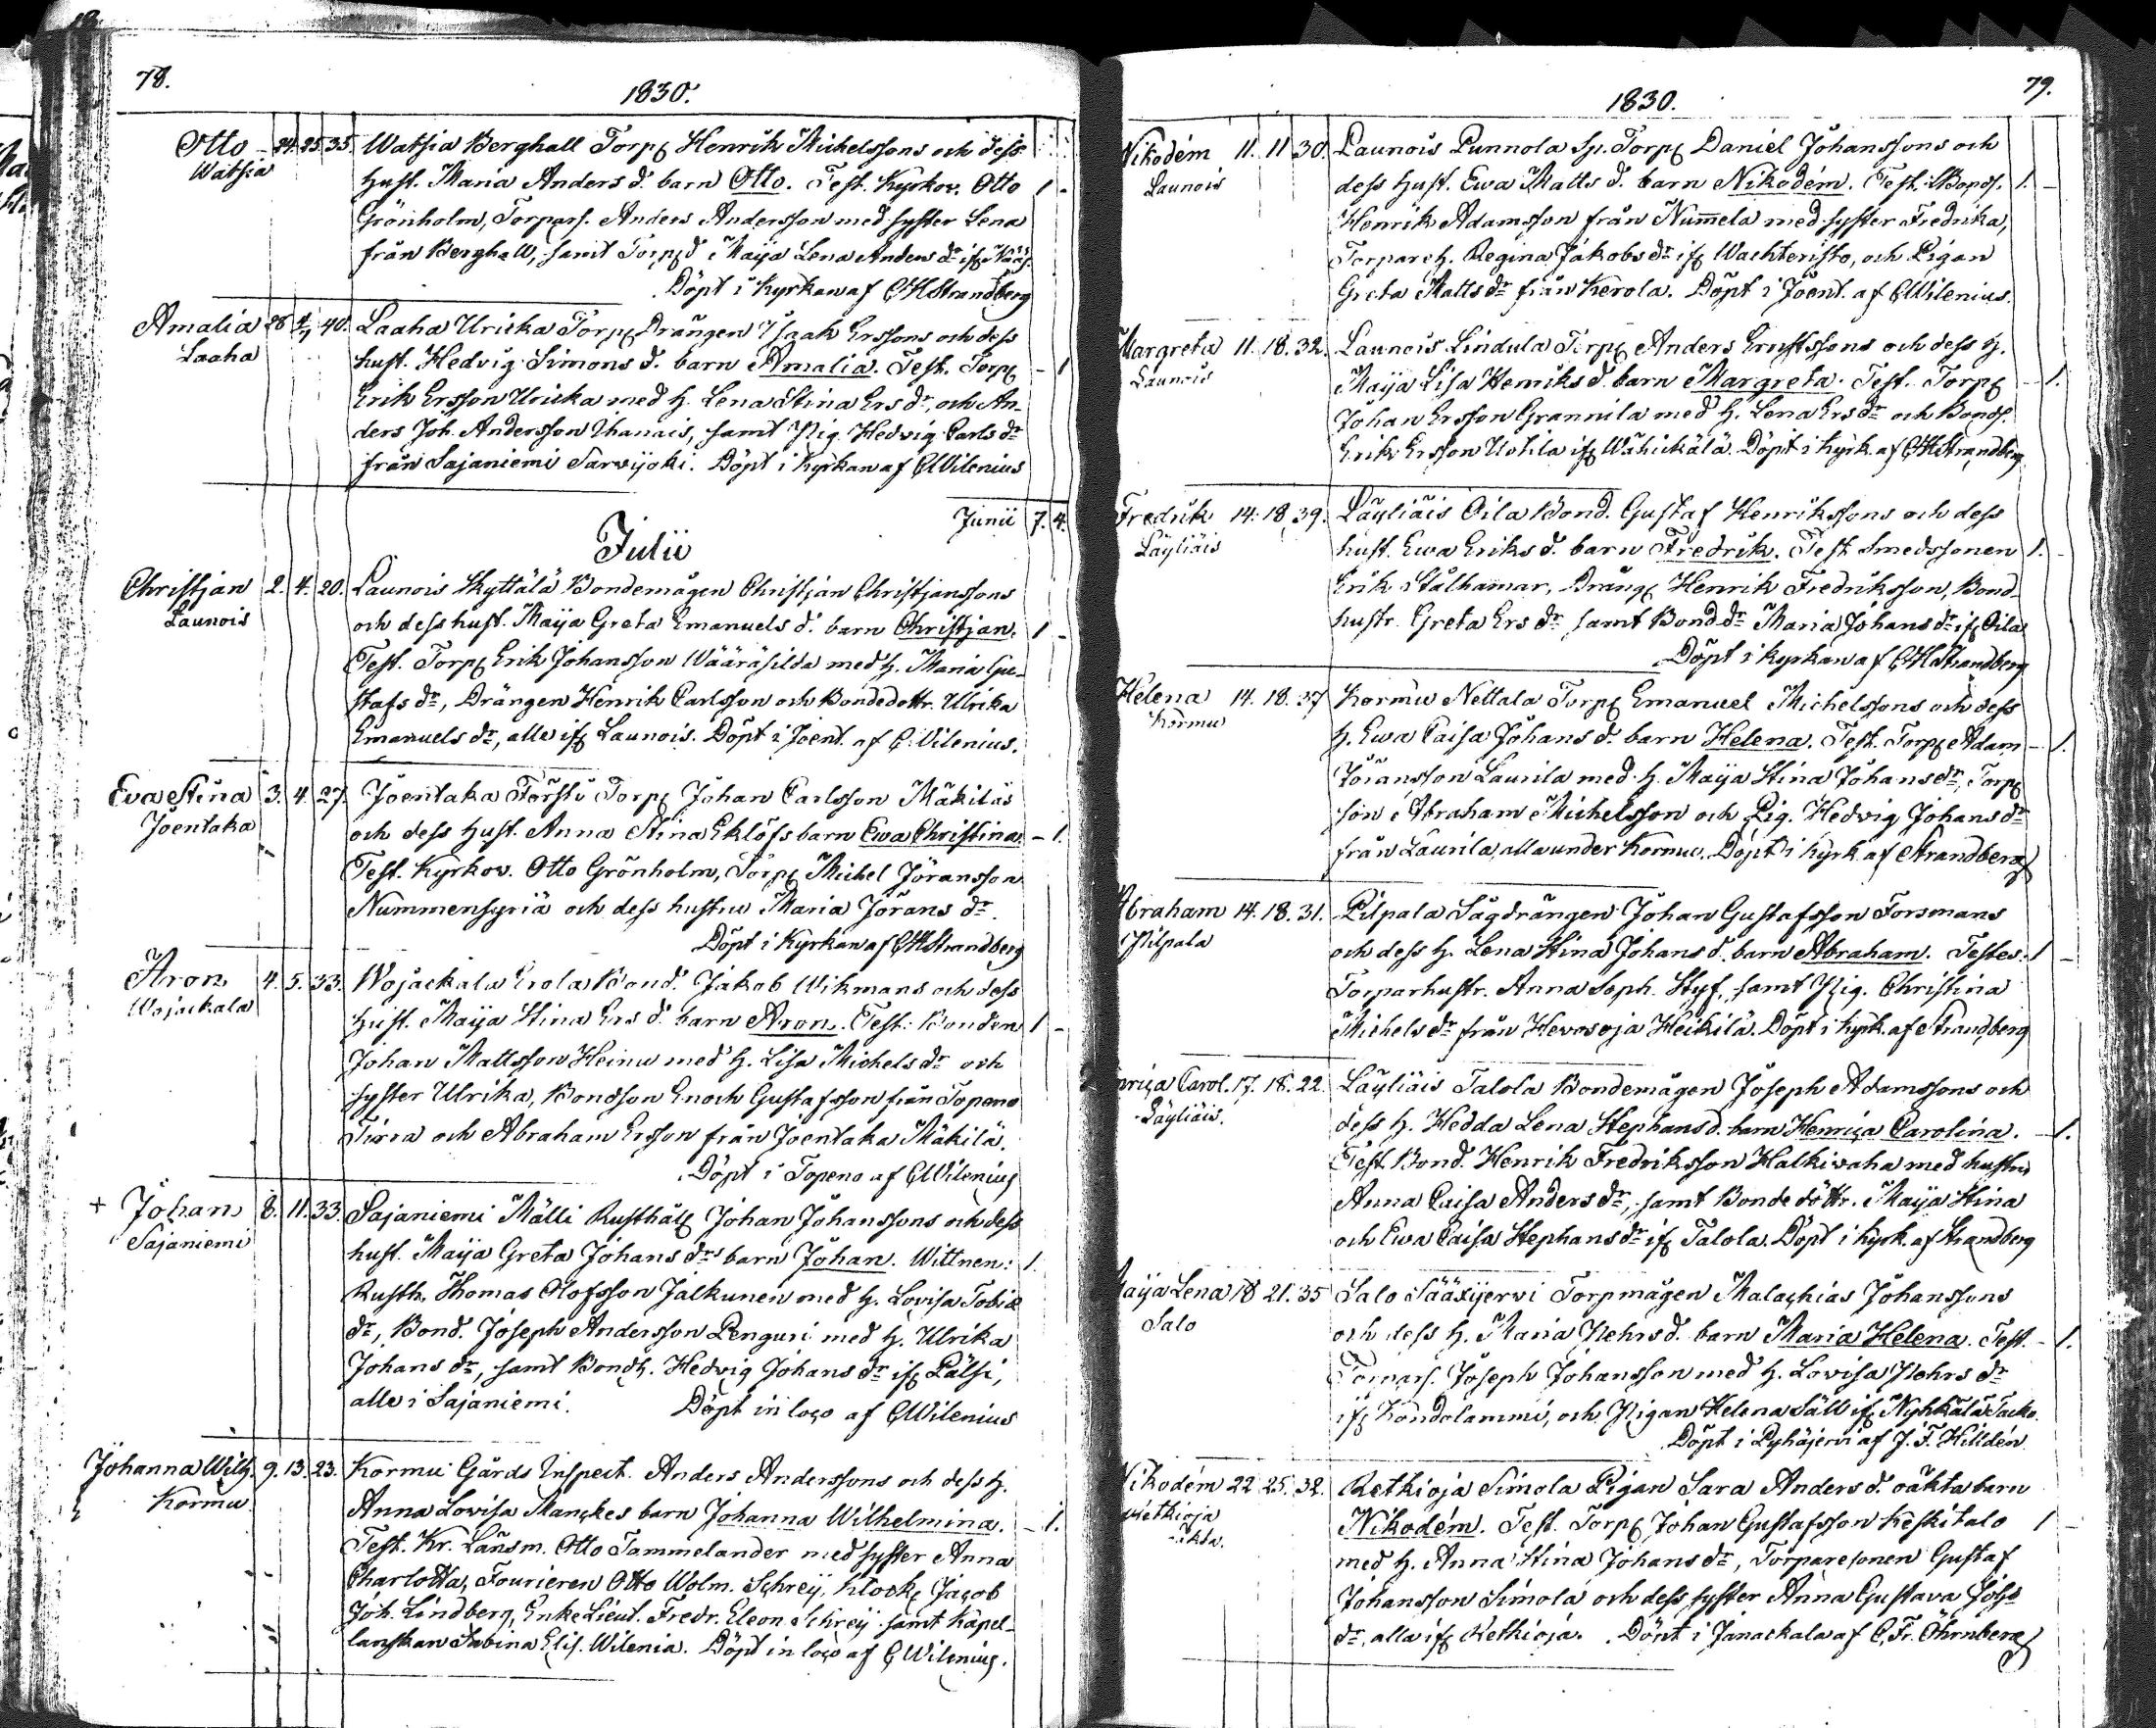 78.
1830.
Otto 24. 25. 35. Watsia Berghall Torp Henrik Michelssons och dess
Watsia hust. Maria Anders d. barn Otto. Test. Kyrkov. Otto 1 -
Grönholm, Torpars. Anders Andersson med syster Lena
från Berghall, samt Torp d Maija Lena Anders dr
Döpt i Kyrkan af CHStrandberg
Amalia 28 4/7 40. Laaha Uricka Torp Drängen Isaak Erssons och dess
Laaha hust. Hedvig Simons d. barn Amalia. Test. Torp - 1
Erik Ersson Uricka med h. Lena Stina Ers dr, och An-
ders Joh. Andersson Uhanais, samt Pig. Hedvig Carls dr
från Sajaniemi Sarvijoki. Döpt i Kyrkan af CWilenius
Junii 7. 4.
Julii
Christjan 2. 4. 20. Launois Skyttälä Bondemågen Christjan Christjanssons
Launois och dess hust. Maija Greta Emanuels d. barn Christjan. 1 -
Test. Torp Erik Johansson Wääräsilda med h. Maria Gu-
stafs dr, Drängen Henrik Carlsson och Bondedottr. Ulrika
Emanuels dr, alle if Launois. Döpt i Joent. af C. Wilenius.
Eva Stina 3. 4. 27. Joentaka Försti Torp Johan Carlsson Mäkiläs
Joentaka och dess hust. Anna Stina Eklöfs barn Ewa Christina. - 1.
Test. Kyrkov. Otto Grönholm, Torp Michel Jöransson
Nummensyriä och dess hustru Maria Jörans dr.
Döpt i Kyrkan af CHStrandberg
Aron 4. 5. 33. Wojackala Erola Bond. Jakob Wikmans och dess
Wojackala hust. Maija Stina Ers d. barn Aron. Test: Bonden 1 -
Johan Mattsson Heinu med h. Lisa Michels dr och
syster Ulrika, Bondson Enoch Gustafsson från Topeno
och Abraham Ersson från Joentaka Mäkilä.
Döpt i Topeno af CWilenius
+ Johan 8. 11. 33. Sajaniemi Mälli Rusthåll Johan Johanssons och dess
Sajaniemi hust. Maija Greta Johans drs barn Johan. Wittnen: 1.
Rusth. Thomas Olofsson Jalkunen med h. Lovisa Tobiæ
dr, Bond. Joseph Andersson Penguri med h. Ulrika
Johans dr, samt Bondh. Hedvig Johans dr if Pälsi,
alle i Sajaniemi. Döpt in loco af CWilenius
Johanna Wilh. 9. 13. 23. Kormu Gårds Inspect. Anders Anderssons och dess h.
Kormu. Anna Lovisa Manckes barn Johanna Wilhelmina. - 1.
Test. Kr. Länsm. Otto Tammelander med syster Anna
Charlotta, Fourieren Otto Wolm. Schreij, Klock Jacob
Joh. Lindberg, Enke Lieut. Fredr. Eleon Schreij samt Kapel-
lanskan Sabina Elis. Wilenia. Döpt in loco af CWilenius.
79.
1830.
Nikodém 11. 11 30. Launois Punnola Sp. Torp Daniel Johanssons och
Launois dess hust. Ewa Matts d. barn Nikodém. Test. 1. -
Henrik Adamsson från Nummela med syster Fredrika,
Torpare h. Regina Jakobs dr if Wachteristo, och Pigan
Greta Matts dr från Kerola. Döpt i Joent. af CWilenius.
Margreta 11. 18. 32. Launois Lindula Torp Anders Ernstssons och dess h.
Launois Maija Lisa Henriks d. barn Margreta. Test. Torp - 1.
Johan Ersson Grannila med h. Lena Ers dr och Bonds.
Erik Ersson Uotila if Wähickälä. Döpt i Kyrk. af CHStrandberg
Fredrik 14. 18. 39. Läyliäis Oila Bond. Gustaf Henrikssons och dess
Läyliäis hust. Ewa Eriks d. barn Fredrik. Test Smedssonen 1. -
Erik Stålhamar, Dräng Henrik Fredriksson, Bond-
hustr. Greta Ers dr samt Bond.dr Maria Johans dr if Oila
Döpt i kyrkan af CHStrandberg
Helena 14. 18. 37 Kormu Nettala Torp Emanuel Michelssons och dess
Kormu h. Ewa Caisa Johans d. barn Helena. Test. Torp Adam - 1.
Jöransson Laurila med h. Maija Stina Johans dr, Torp
son Abraham Michelsson och Pig. Hedvig Johans dr
från Laurila, alla under Kormu. Döpt i Kyrk. af Strandberg
Abraham 14. 18. 31. Pilpala Sågdrängen Johan Gustafsson Forsmans
Pilpala och dess h. Lena Stina Johans d. barn Abraham. Testes. 1 -
Torparhustr. Anna Soph. Styf, samt Pig. Christina
Michels dr från Hevosoja Heikilä. Döpt i Kyrk. af Strandberg
Carol. 17. 18. 22. Läyliäis Talola Bondemågen Joseph Adamssons och
Läyliäis. dess h. Hedda Lena Stephans d. barn Henrica Carolina. - 1.
Test. Bond. Henrik Fredriksson Halkivaha med hustru
Anna Caisa Anders dr, samt Bonde döttr. Maija Stina
och Ewa Caisa Stephans dr if Talola. Döpt i Kyrk. af Strandberg
Maija Lena 18 21. 35 Salo Sääxijervi Torpmågen Malachias Johanssons
Salo och dess h. Maria Pehrs d. barn Maria Helena. Test. - 1.
Torpars. Joseph Johansson med h. Lovisa Pehrs dr
if Kondolammi, och Pigan Helena Säll if Nyhkälä
Döpt i Pyhäjervi af J. F. Hilldén
Nikodém 22 25. 32. Retkioja Simola Pigan Sara Anders d. oäkta barn
Retkioja Nikodém. Test. Torp Johan Gustafsson Keskitalo 1 -
med h. Anna Stina Johans dr, Torparesonen Gustaf
Johansson Simola och dess syster Anna Gustava Johs
dr, alla if Retkioja. Döpt i Janackala af C. Fr. Öhrnberg